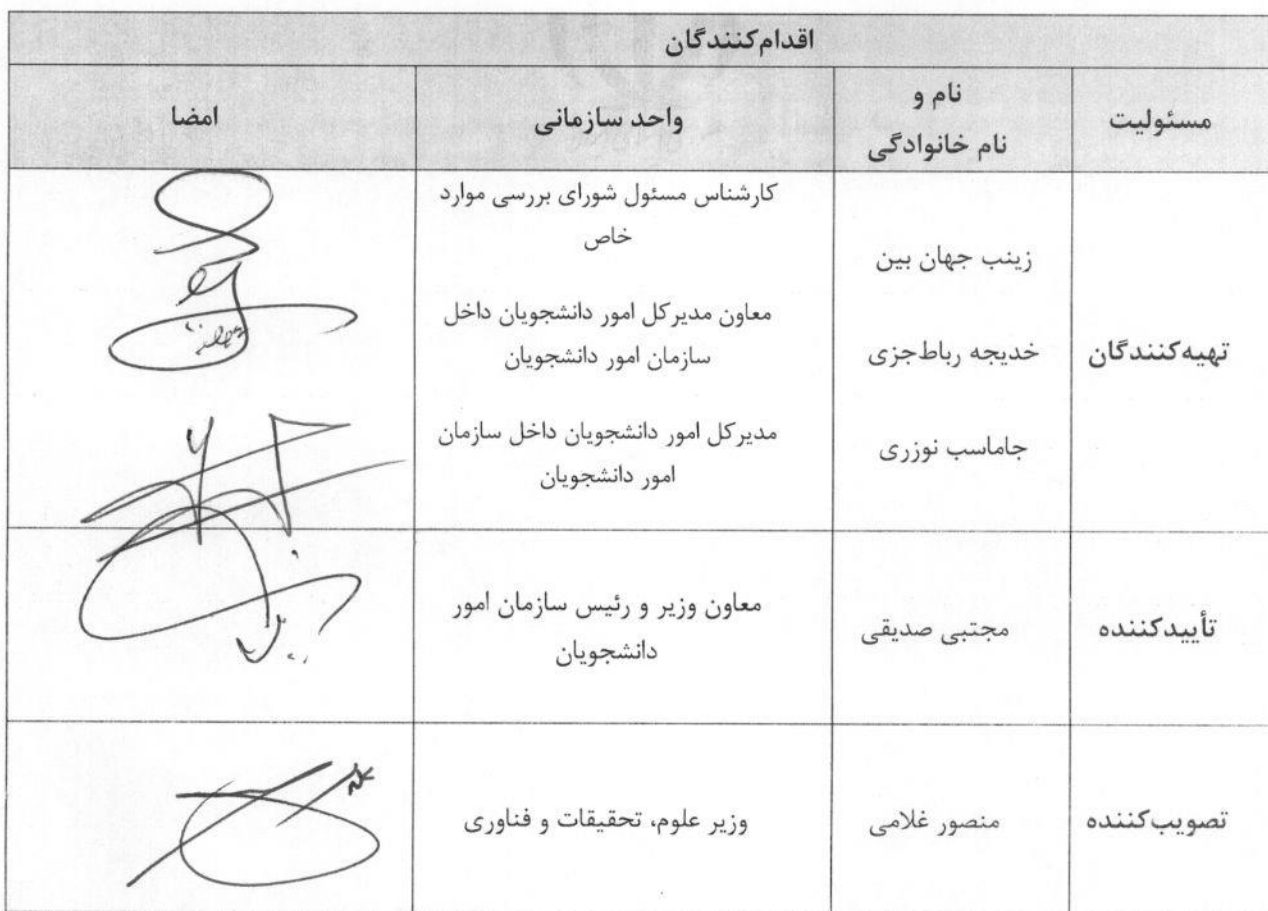 اقدام‌کنندگان
مسئولیت
نام و
نام خانوادگی
واحد سازمانی
امضا
تهیه‌کنندگان
زینب جهان بین
کارشناس مسئول شورای بررسی موارد
خاص
خدیجه رباط‌جزی
معاون مدیرکل امور دانشجویان داخل
سازمان امور دانشجویان
جاماسب نوزری
مدیرکل امور دانشجویان داخل سازمان
امور دانشجویان
تأییدکننده
مجتبی صدیقی
معاون وزیر و رئیس سازمان امور
دانشجویان
تصویب‌کننده
منصور غلامی
وزیر علوم، تحقیقات و فناوری